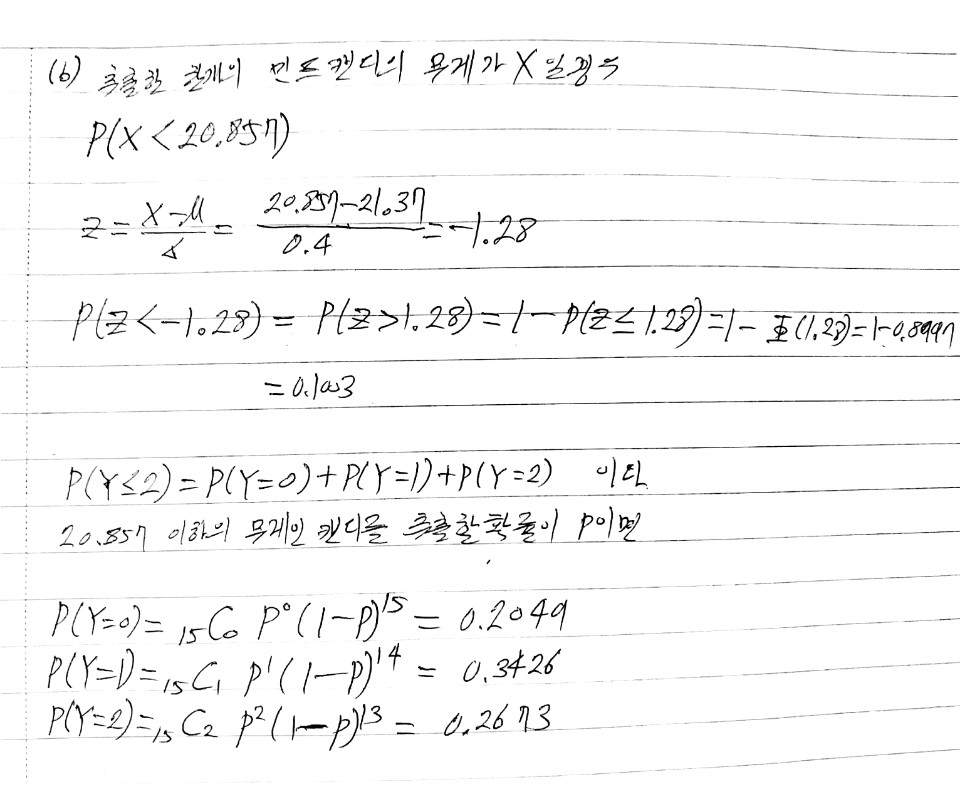 (b) 추출한 한개의 민트캔디의 무게가 X일경우
P(X < 20.857)
z = (X-μ)/σ = (20.857-21.37)/0.4 = -1.28
P(z<-1.28) = P(z>1.28) = 1 - P(z≤1.28) = 1 - Φ(1.28) = 1-0.8997
= 0.1003
P(Y≤2) = P(Y=0)+P(Y=1)+P(Y=2) 이다
20.857 이하의 무게인 캔디를 추출할 확률이 p이면
P(Y=0) = ₁₅C₀ P⁰(1-P)¹⁵ = 0.2049
P(Y=1) = ₁₅C₁ P¹(1-P)¹⁴ = 0.3426
P(Y=2) = ₁₅C₂ P²(1-P)¹³ = 0.2673